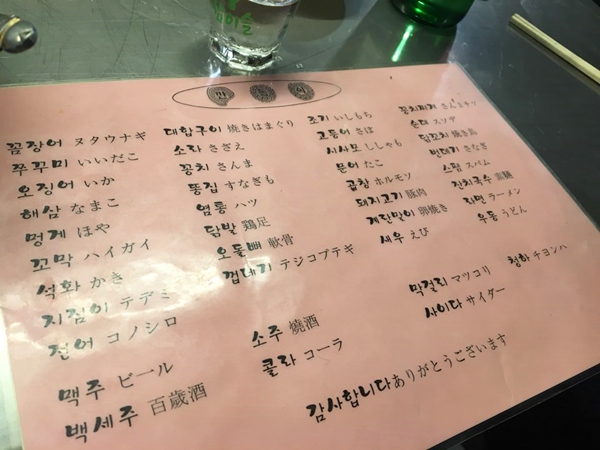 이슬
꼼장어 ヌタウナギ
쭈꾸미 いいだこ
오징어 いか
해삼 なまこ
멍게 ほや
꼬막 ハイガイ
석화 かき
지짐이 テデミ
전어 コノシロ
대합구이 焼きはまぐり
소라 さざえ
꽁치 さんま
똥집 すなぎも
염통 ハツ
닭발 鶏足
오돌뼈 軟骨
껍데기 テジコプテギ
조기 いしもち
고등어 さば
시사모 ししゃも
문어 たこ
곱창 ホルモン
돼지고기 豚肉
계란말이 卵焼き
새우 えび
꽁치찌개 さんまチゲ
순대 スンデ
닭꼬치 焼き鳥
번데기 さなぎ
스팸 スパム
잔치국수 素麺
라면 ラーメン
우동 うどん
맥주 ビール
백세주 百歳酒
소주 焼酒
콜라 コーラ
막걸리 マッコリ
사이다 サイダー
청하 チョンハ
감사합니다 ありがとうございます